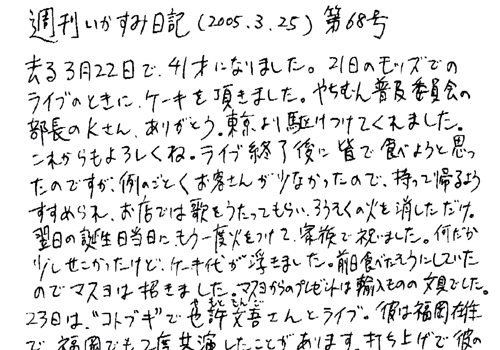 週刊いかすみ日記(2005.3.25)第68号
去る3月22日で、41才になりました。21日のモッズでの
ライブのときに、ケーキを頂きました。やちむん普及委員会の
部長のKさん、ありがとう。東京より駆けつけてくれました。
これからもよろしくね。ライブ終了後に皆で食べようと思っ
たのですが、例のごとくお客さんが少なかったので、持って帰るよう
すすめられ、お店では歌をうたってもらい、ろうそくの火を消しただけ。
翌日の誕生日当日にもう一度火をつけて、家族で祝いました。何だか
少しせこかったけど、ケーキ代が浮きました。前日食べたそうにしていた
のでマスヨは招きました。マスヨからのプレゼントは輸入ものの文具でした。
23日は、"コトブキ"で也許文吾さんとライブ。彼は福岡在住
やもともんご
で、福岡でも2度共演したことがあります。打ち上げで彼の